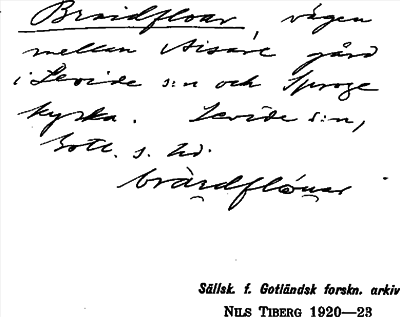 Braidfloar, vägen
mellan Aisare gård
i Levide s:n och Sproge
kyrka. Levide s:n,
Gotl. s. hd.
bràrdflónar
Sällsk. f. Gotländsk forskn. arkiv
NILS TIBERG 1920—23